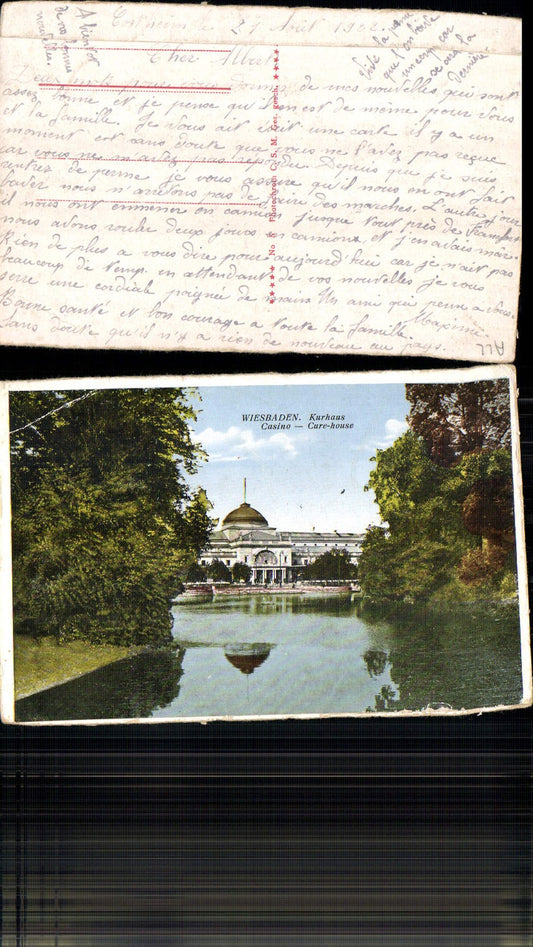 27 Août 1922
Cher Albert
Deux mots pour vous donner de mes nouvelles qui sont
assez bonne et je pense qu'il en est de même pour vous
et la famille. Je vous ait écrit une carte il y a un
moment est sans doute que vous ne l'avez pas reçue
car vous ne m'avez pas repondu. Depuis que je suis
rentrez de perme je vous assure qu'il nous en ont fait
baver nous n'arretons pas de faire des marches. L'autre jour
il nous ont emmener en camions jusque tout près de
nous avons rouler deux jours en camions et j'en avais marre
Rien de plus a vous dire pour aujourd'hui car je n'ait pas
beaucoup de temps. en attendant de vos nouvelles je vous
serre une cordiale poignée de mains Un ami qui pense a vous.
Maxime
Bonne santé et bon courage a toute la famille
Sans doute qu'il n'y a rien de nouveau au pays.
A bientot
de vos bonnes
nouvelles.
Vive la perme
que l'on
car
sera la
Dernière
No Photochrom C. S. M. Ges. gesch.
ALL
WIESBADEN. Kurhaus
Casino — Cure-house